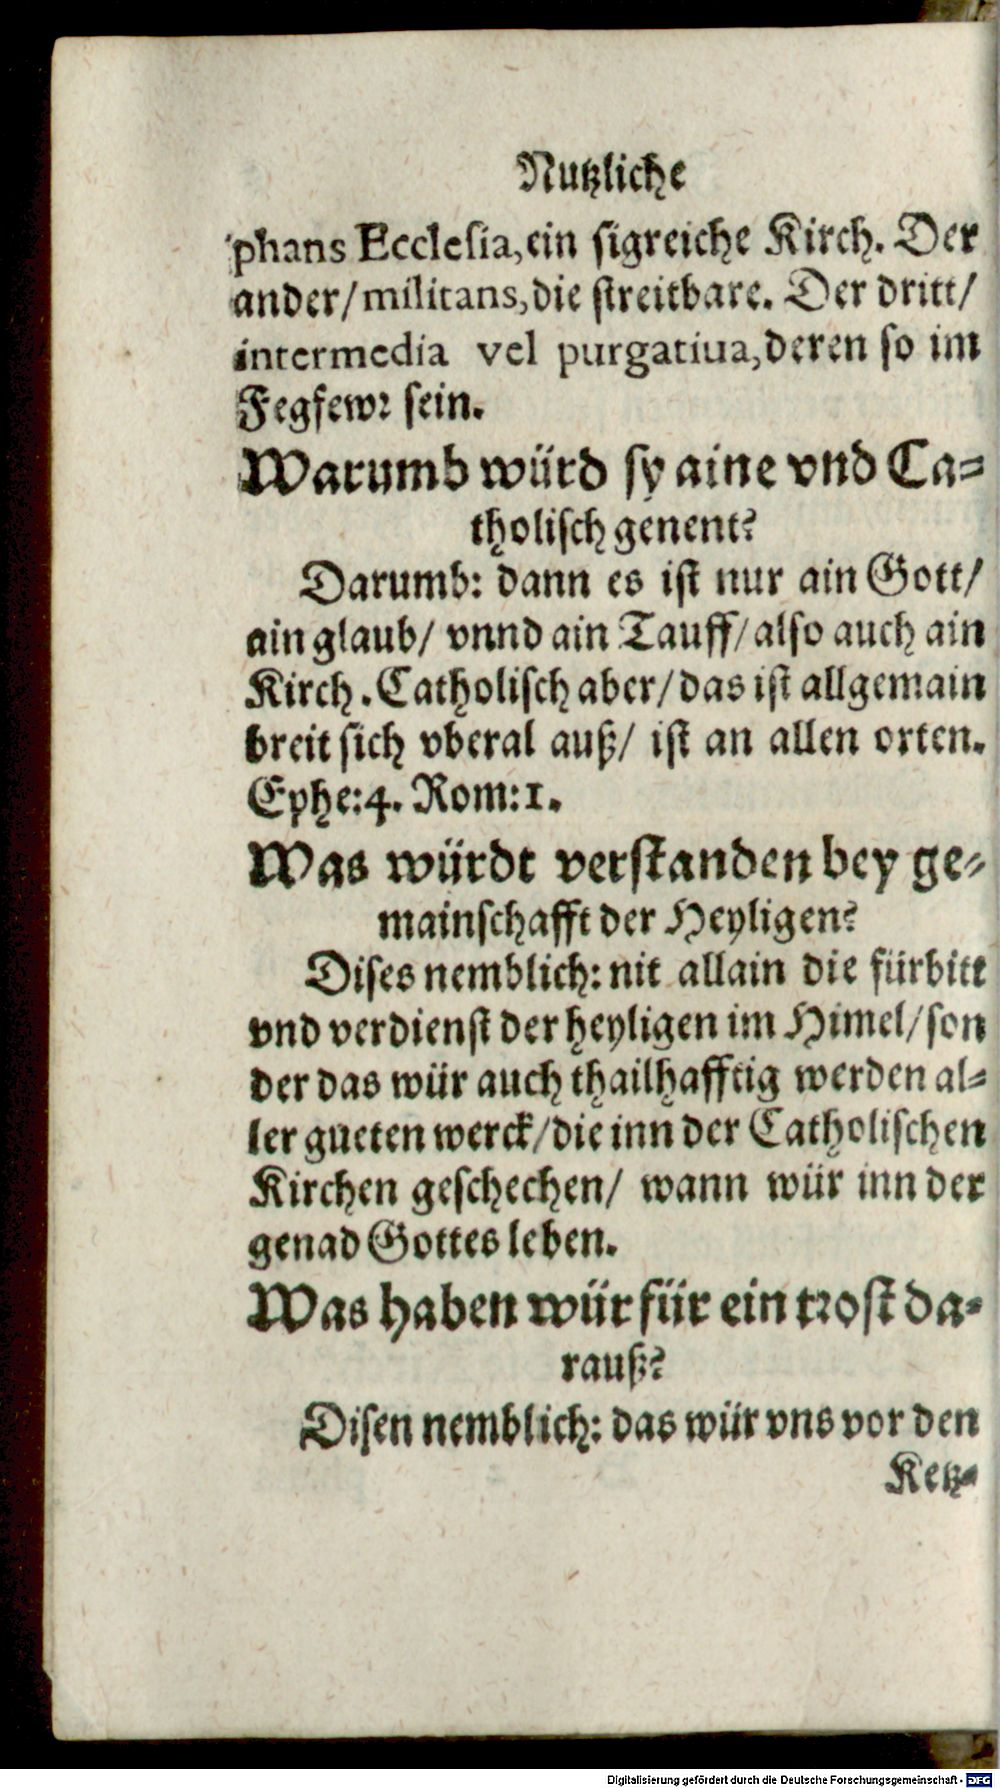 Nutzliche
phans Ecclesia, ein sigreiche Kirch. Der
ander/ militans, die streitbare. Der dritt/
intermedia vel purgatiua, deren so im
Fegfewr sein.
Warumb würd sy aine vnd Ca-
tholisch genent?
Darumb: dann es ist nur ain Gott/
ain glaub/ vnnd ain Tauff/ also auch ain
Kirch. Catholisch aber/ das ist allgemain
breit sich vberal auß/ ist an allen orten.
Ephe: 4. Rom: 1.
Was würdt verstanden bey ge-
mainschafft der Heyligen?
Dises nemblich: nit allain die fürbitt
vnd verdienst der heyligen im Himel/ son
der das wür auch thailhafftig werden al-
ler gueten werck/ die inn der Catholischen
Kirchen geschechen/ wann wür inn der
genad Gottes leben.
Was haben wür für ein trost da-
rauß?
Disen nemblich: das wür vns vor den
Ketz-
Digitalisierung gefördert durch die Deutsche Forschungsgemeinschaft - DFG